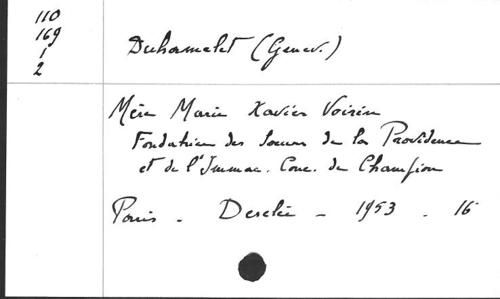 110
169
1
2
Duhamelet (Genev.)
Mère Marie Xavier Voirin
Fondatrice des Soeurs de la Providence
et de l'Immac. Conc. de Champion
Paris - Desclée - 1953 - 16